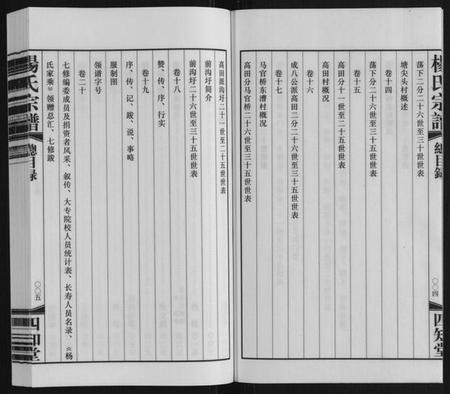 楊氏宗譜
總目録
〇〇四
四知堂
荡下分二十六世至三十世世表
塘尖头村概述
卷十四
荡下分二十六世至三十五世世表
卷十五
高田分十一世至二十五世世表
高田村概况
卷十六
成八公派高田二分二十六世至三十世世表
卷十七
马官桥东漕村概况
高田分马官桥二十六世至三十五世世表
高田派前沟圩二十一世至二十五世世表
前沟圩简介
前沟圩二十六世至三十五世世表
卷十八
赞、传、序、行实
卷十九
序、传、记、跋、说、事略
服制图
领谱字号
卷二十
七修编委成员及捐资者风采、叙传、大专院校人员统计表、长寿人员名录、杨
氏家乘领赠总汇、七修跋
楊氏宗譜
總目録
〇〇五
四知堂